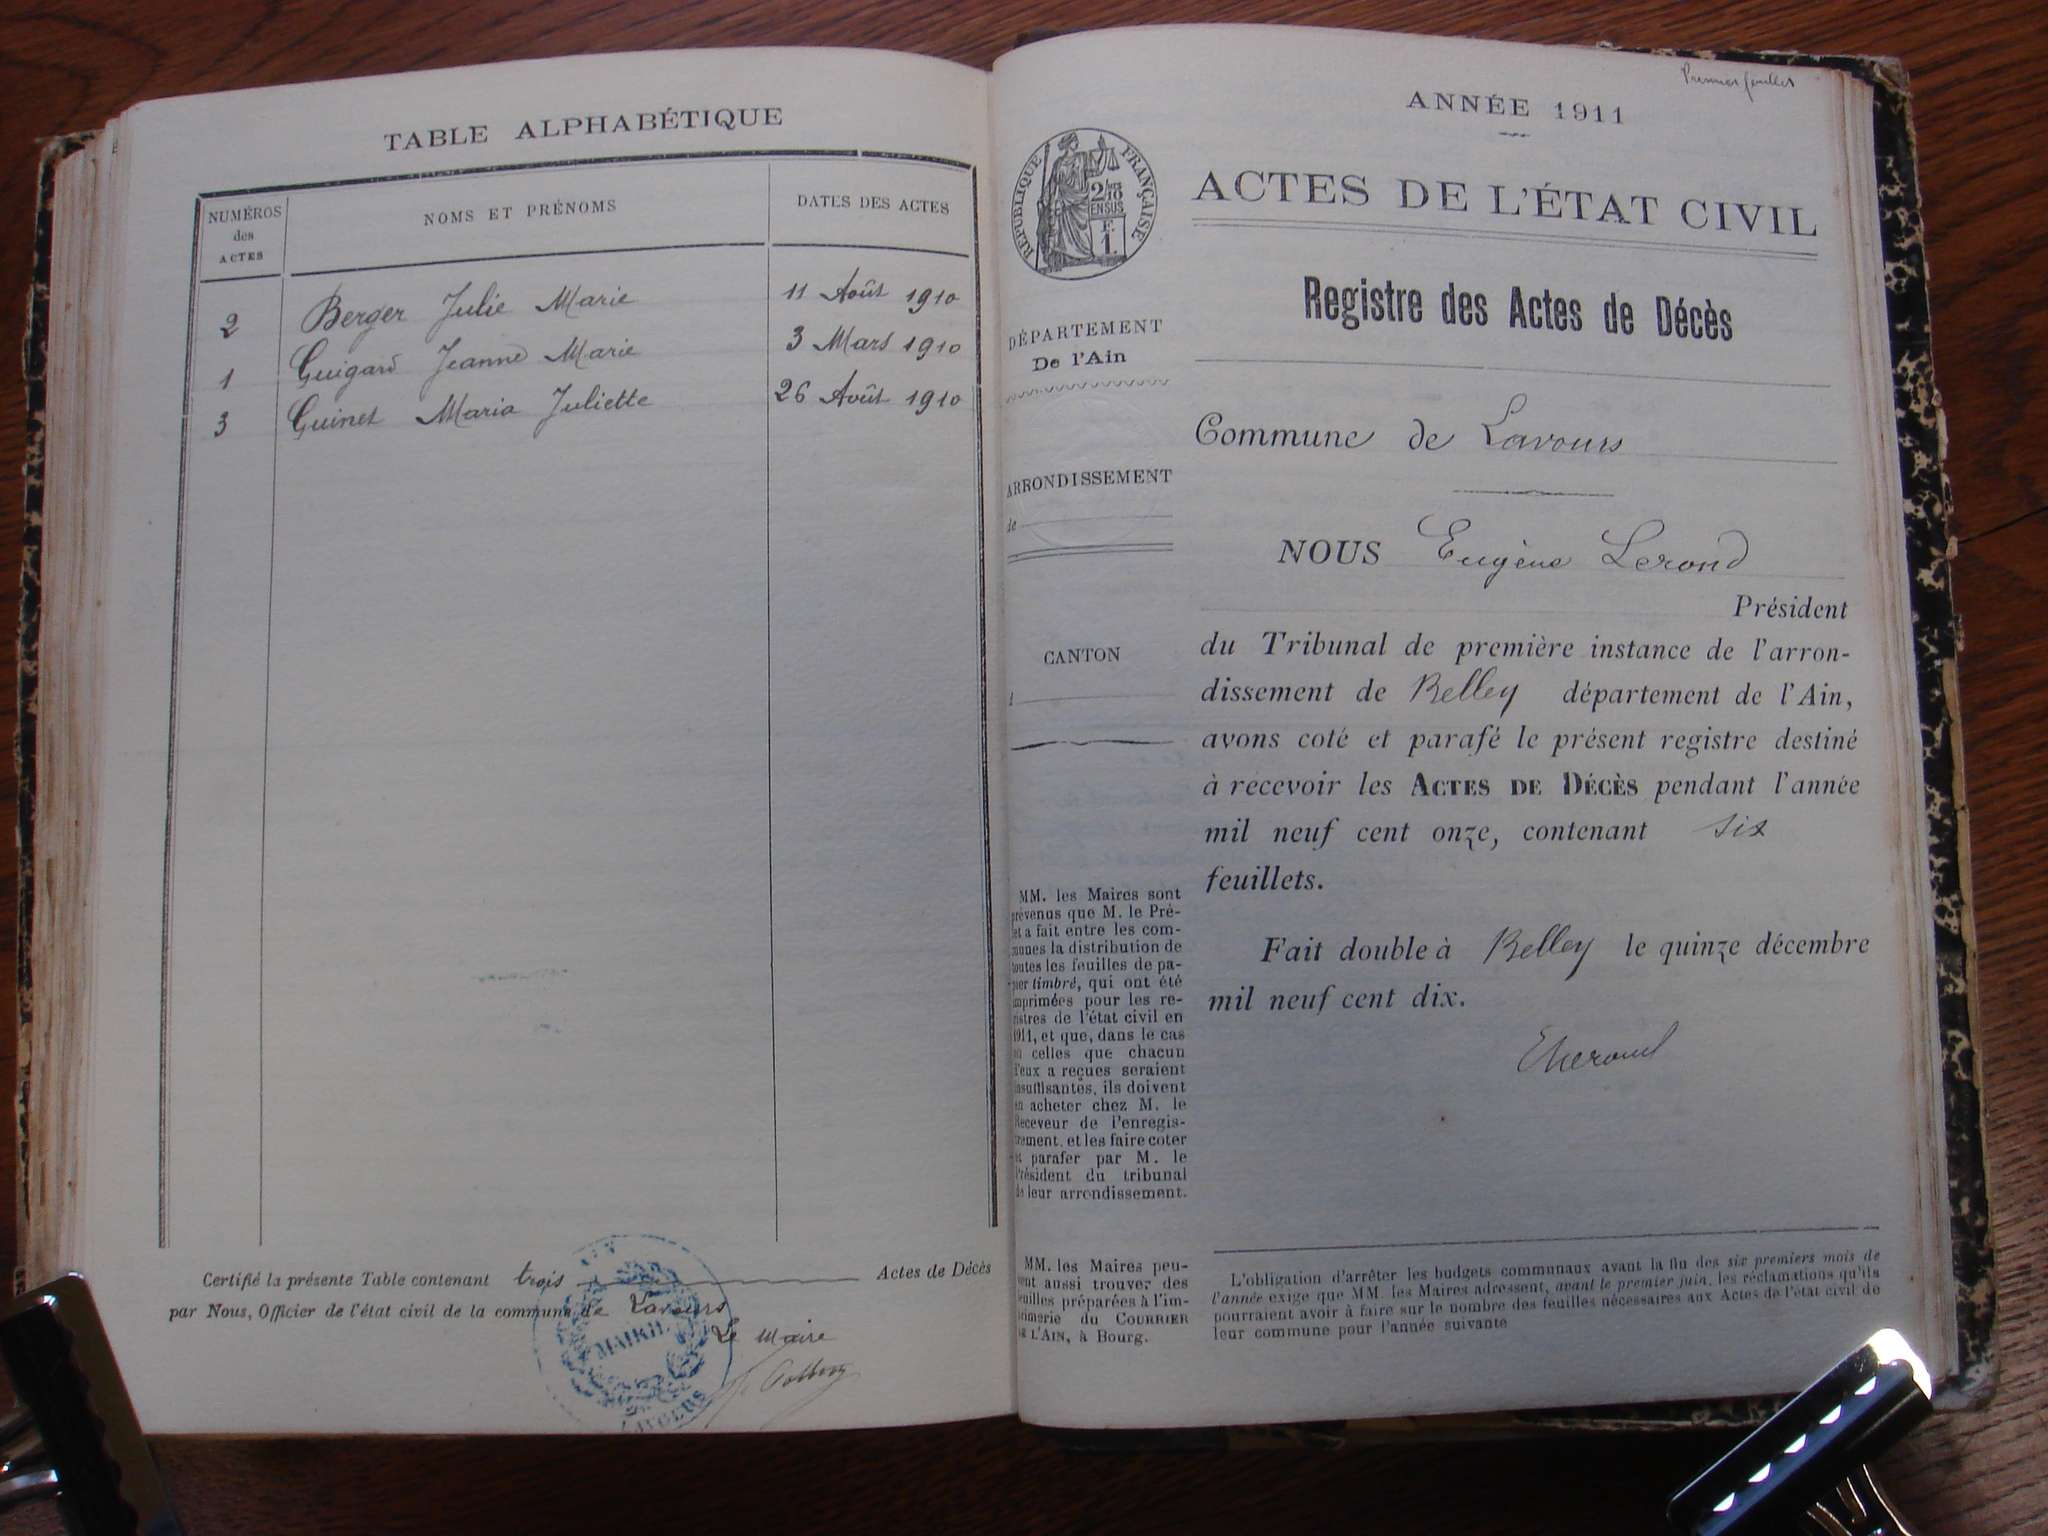 TABLE ALPHABÉTIQUE
NUMÉROS des ACTES
NOMS ET PRÉNOMS
DATES DES ACTES
2 Berger Julie Marie 11 Août 1910
1 Guigard Jeanne Marie 3 Mars 1910
3 Guinet Maria Juliette 26 Août 1910
Certifié la présente Table contenant trois Actes de Décès
par Nous, Officier de l'état civil de la commune de Lavours
Le Maire
MAIRIE
Premier feuillet
ANNÉE 1911
ACTES DE L'ÉTAT CIVIL
Registre des Actes de Décès
RÉPUBLIQUE FRANÇAISE
2/10
EN SUS
F.
1.
DÉPARTEMENT
De l'Ain
ARRONDISSEMENT
de
CANTON
Commune de Lavours
NOUS Eugène Lerond
Président
du Tribunal de première instance de l'arron-
dissement de Belley département de l'Ain,
avons coté et parafé le présent registre destiné
à recevoir les ACTES DE DÉCÈS pendant l'année
mil neuf cent onze, contenant six
feuillets.
Fait double à Belley le quinze décembre
mil neuf cent dix.
MM. les Maires sont
prévenus que M. le Pré-
fet a fait entre les com-
munes la distribution de
toutes les feuilles de pa-
pier timbré, qui ont été
imprimées pour les re-
gistres de l'état civil en
1911, et que, dans le cas
où celles que chacun
d'eux a reçues seraient
insuffisantes, ils doivent
en acheter chez M. le
Receveur de l'enregis-
trement, et les faire coter
et parafer par M. le
Président du tribunal
de leur arrondissement.
MM. les Maires peu-
vent aussi trouver des
feuilles préparées à l'im-
primerie du COURRIER
DE L'AIN, à Bourg.
L'obligation d'arrêter les budgets communaux avant la fin des six premiers mois de
l'année exige que MM. les Maires adressent, avant le premier juin, les réclamations qu'ils
pourraient avoir à faire sur le nombre des feuilles nécessaires aux Actes de l'état civil de
leur commune pour l'année suivante